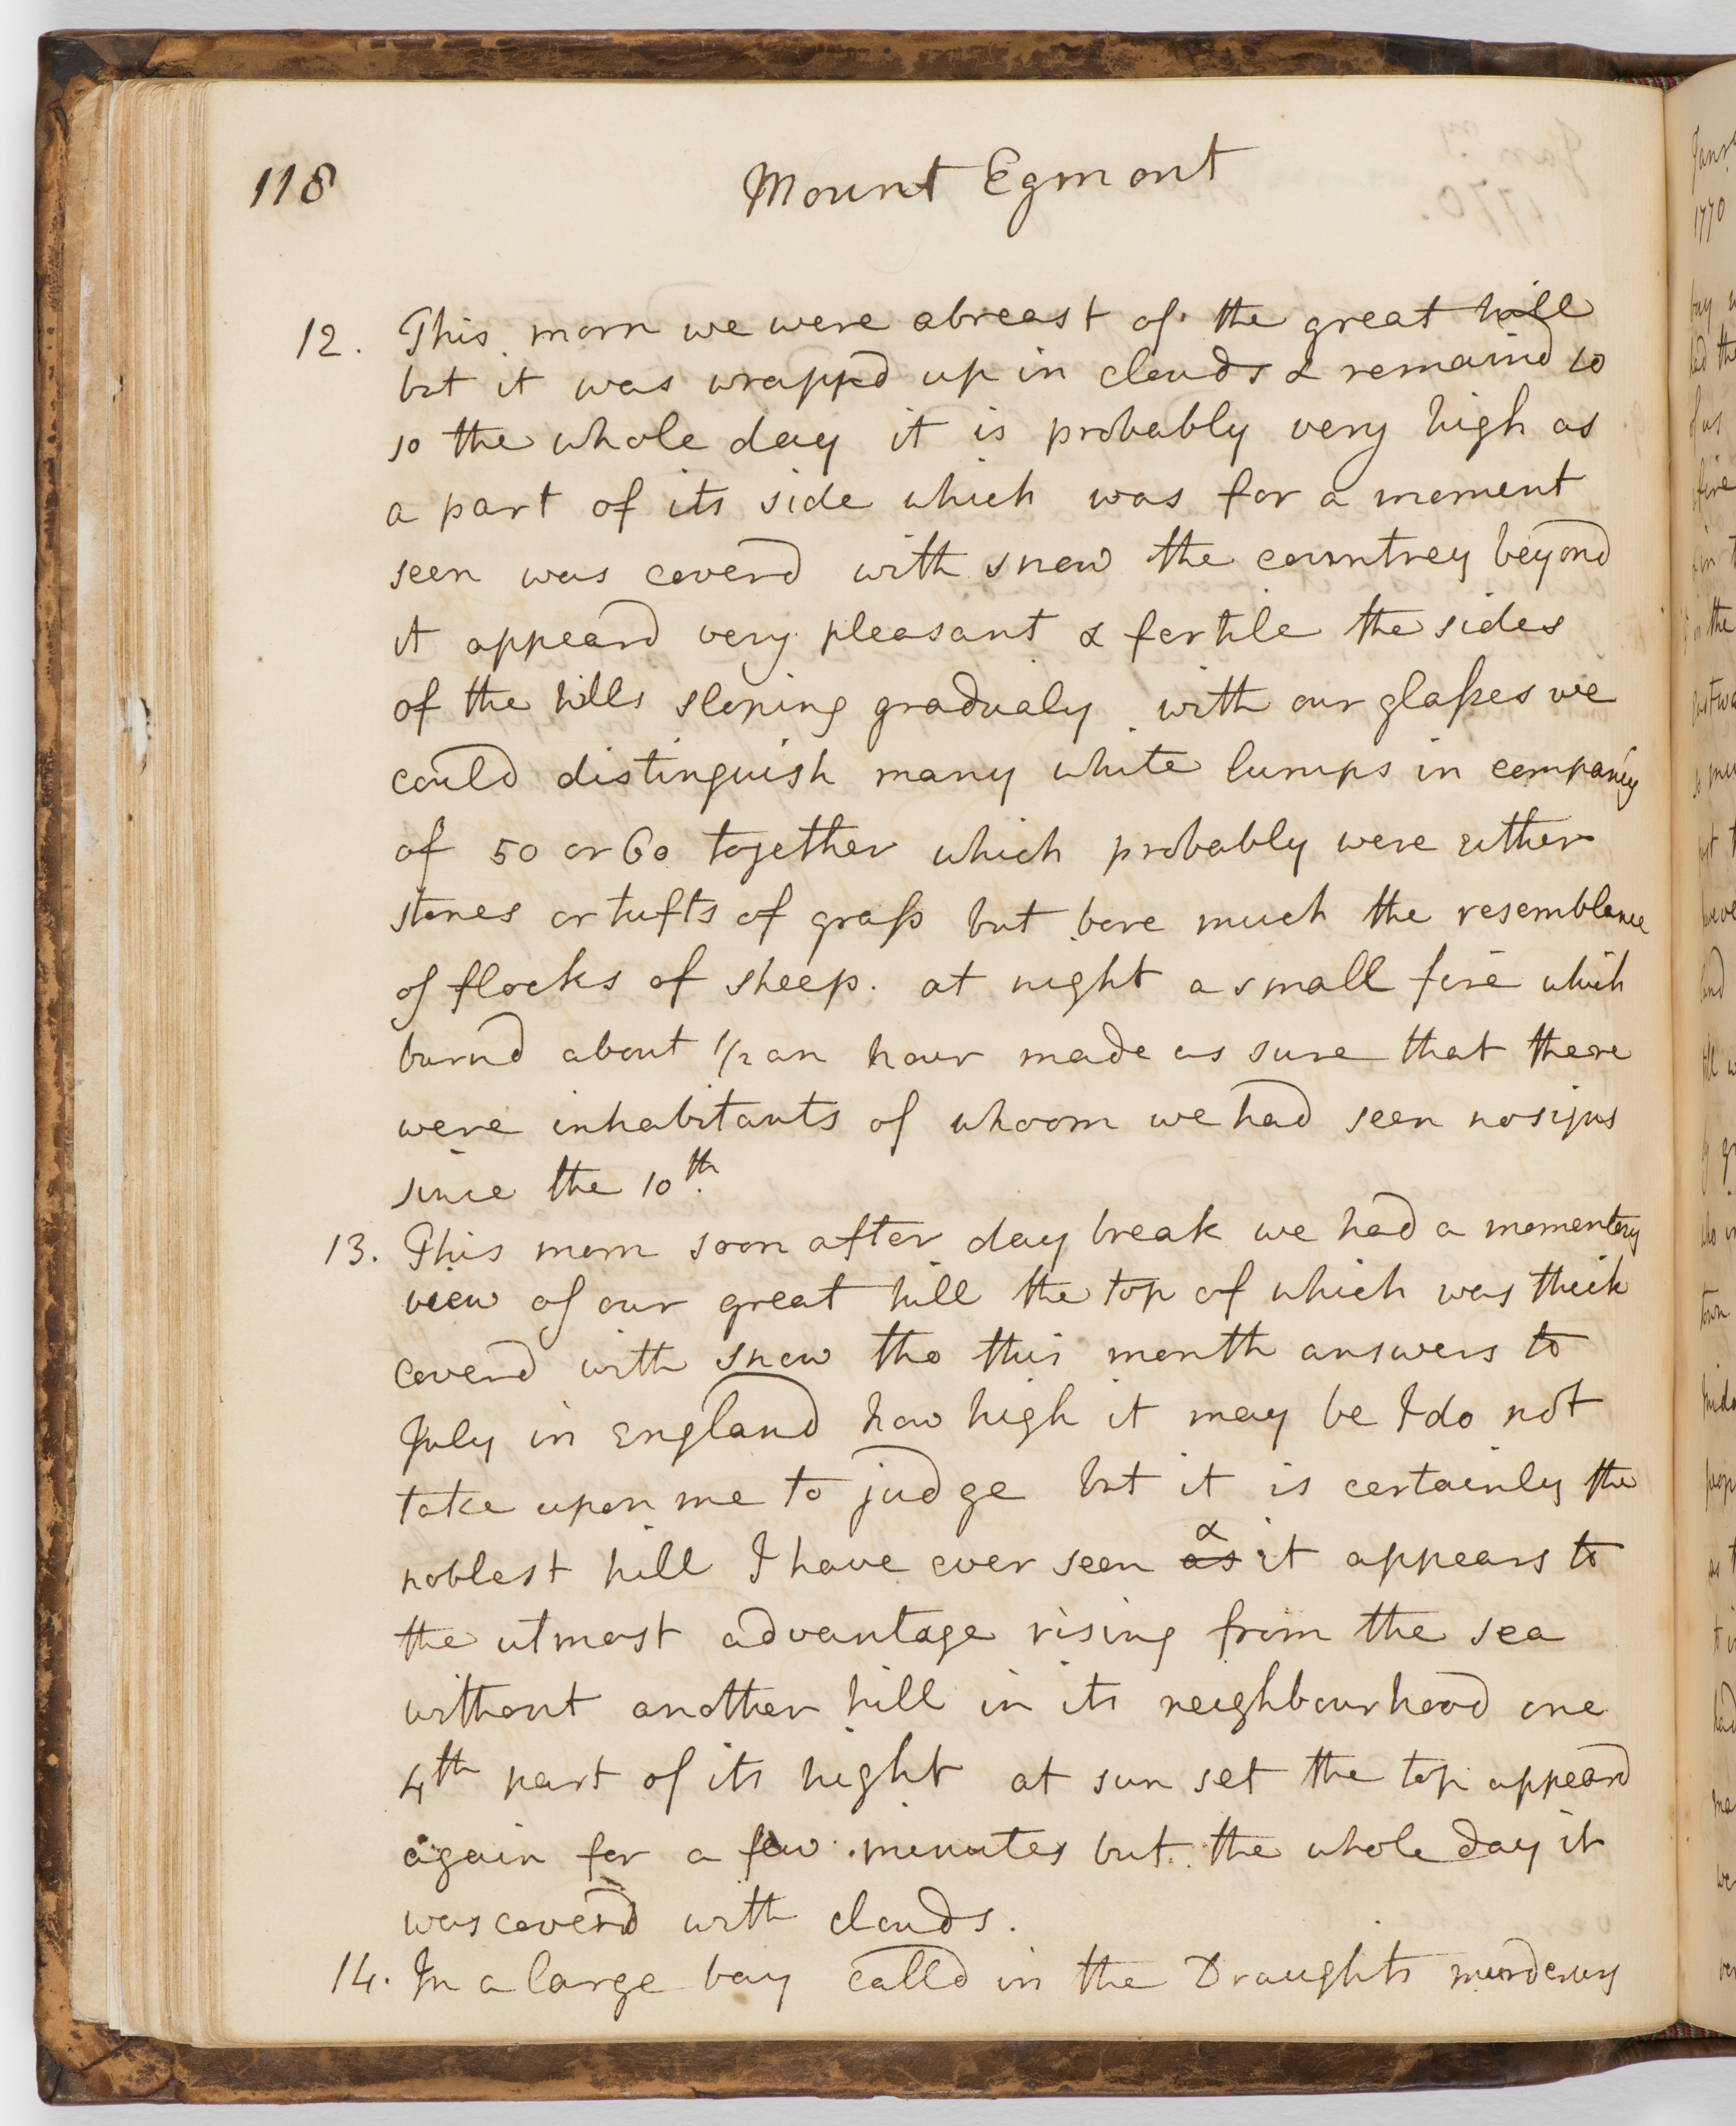 118
Mount Egmont
12. This morn we were abreast of the great hill
but it was wrappd up in clouds & remaind so
so the whole day it is probably very high as
a part of its side which was for a moment
seen was coverd with snow the countrey beyond
it appeard very pleasant & fertile the sides
of the hills sloping gradualy with our glaſses we
could distinguish many white lumps in company
of 50 or 60 together which probably were either
stones or tufts of graſs but bore much the resemblence
of flocks of sheep. at night a small fire which
burnd about 1/2 an hour made us sure that there
were inhabitants of whoom we had seen no signs
since the 10th
13. This morn soon after day break we had a momentary
view of our great hill the top of which was thick
coverd with snow tho this month answers to
July in England how high it may be I do not
take upon me to judge but it is certainly the
noblest hill I have ever seen as & it appears to
the utmost advantage rising from the sea
without another hill in its neighbourhood one
4th part of its hight at sun set the top appeard
again for a few minutes but the whole day it
was coverd with clouds.
14. In a large bay calld in the Draughts murderers
Janry
1770